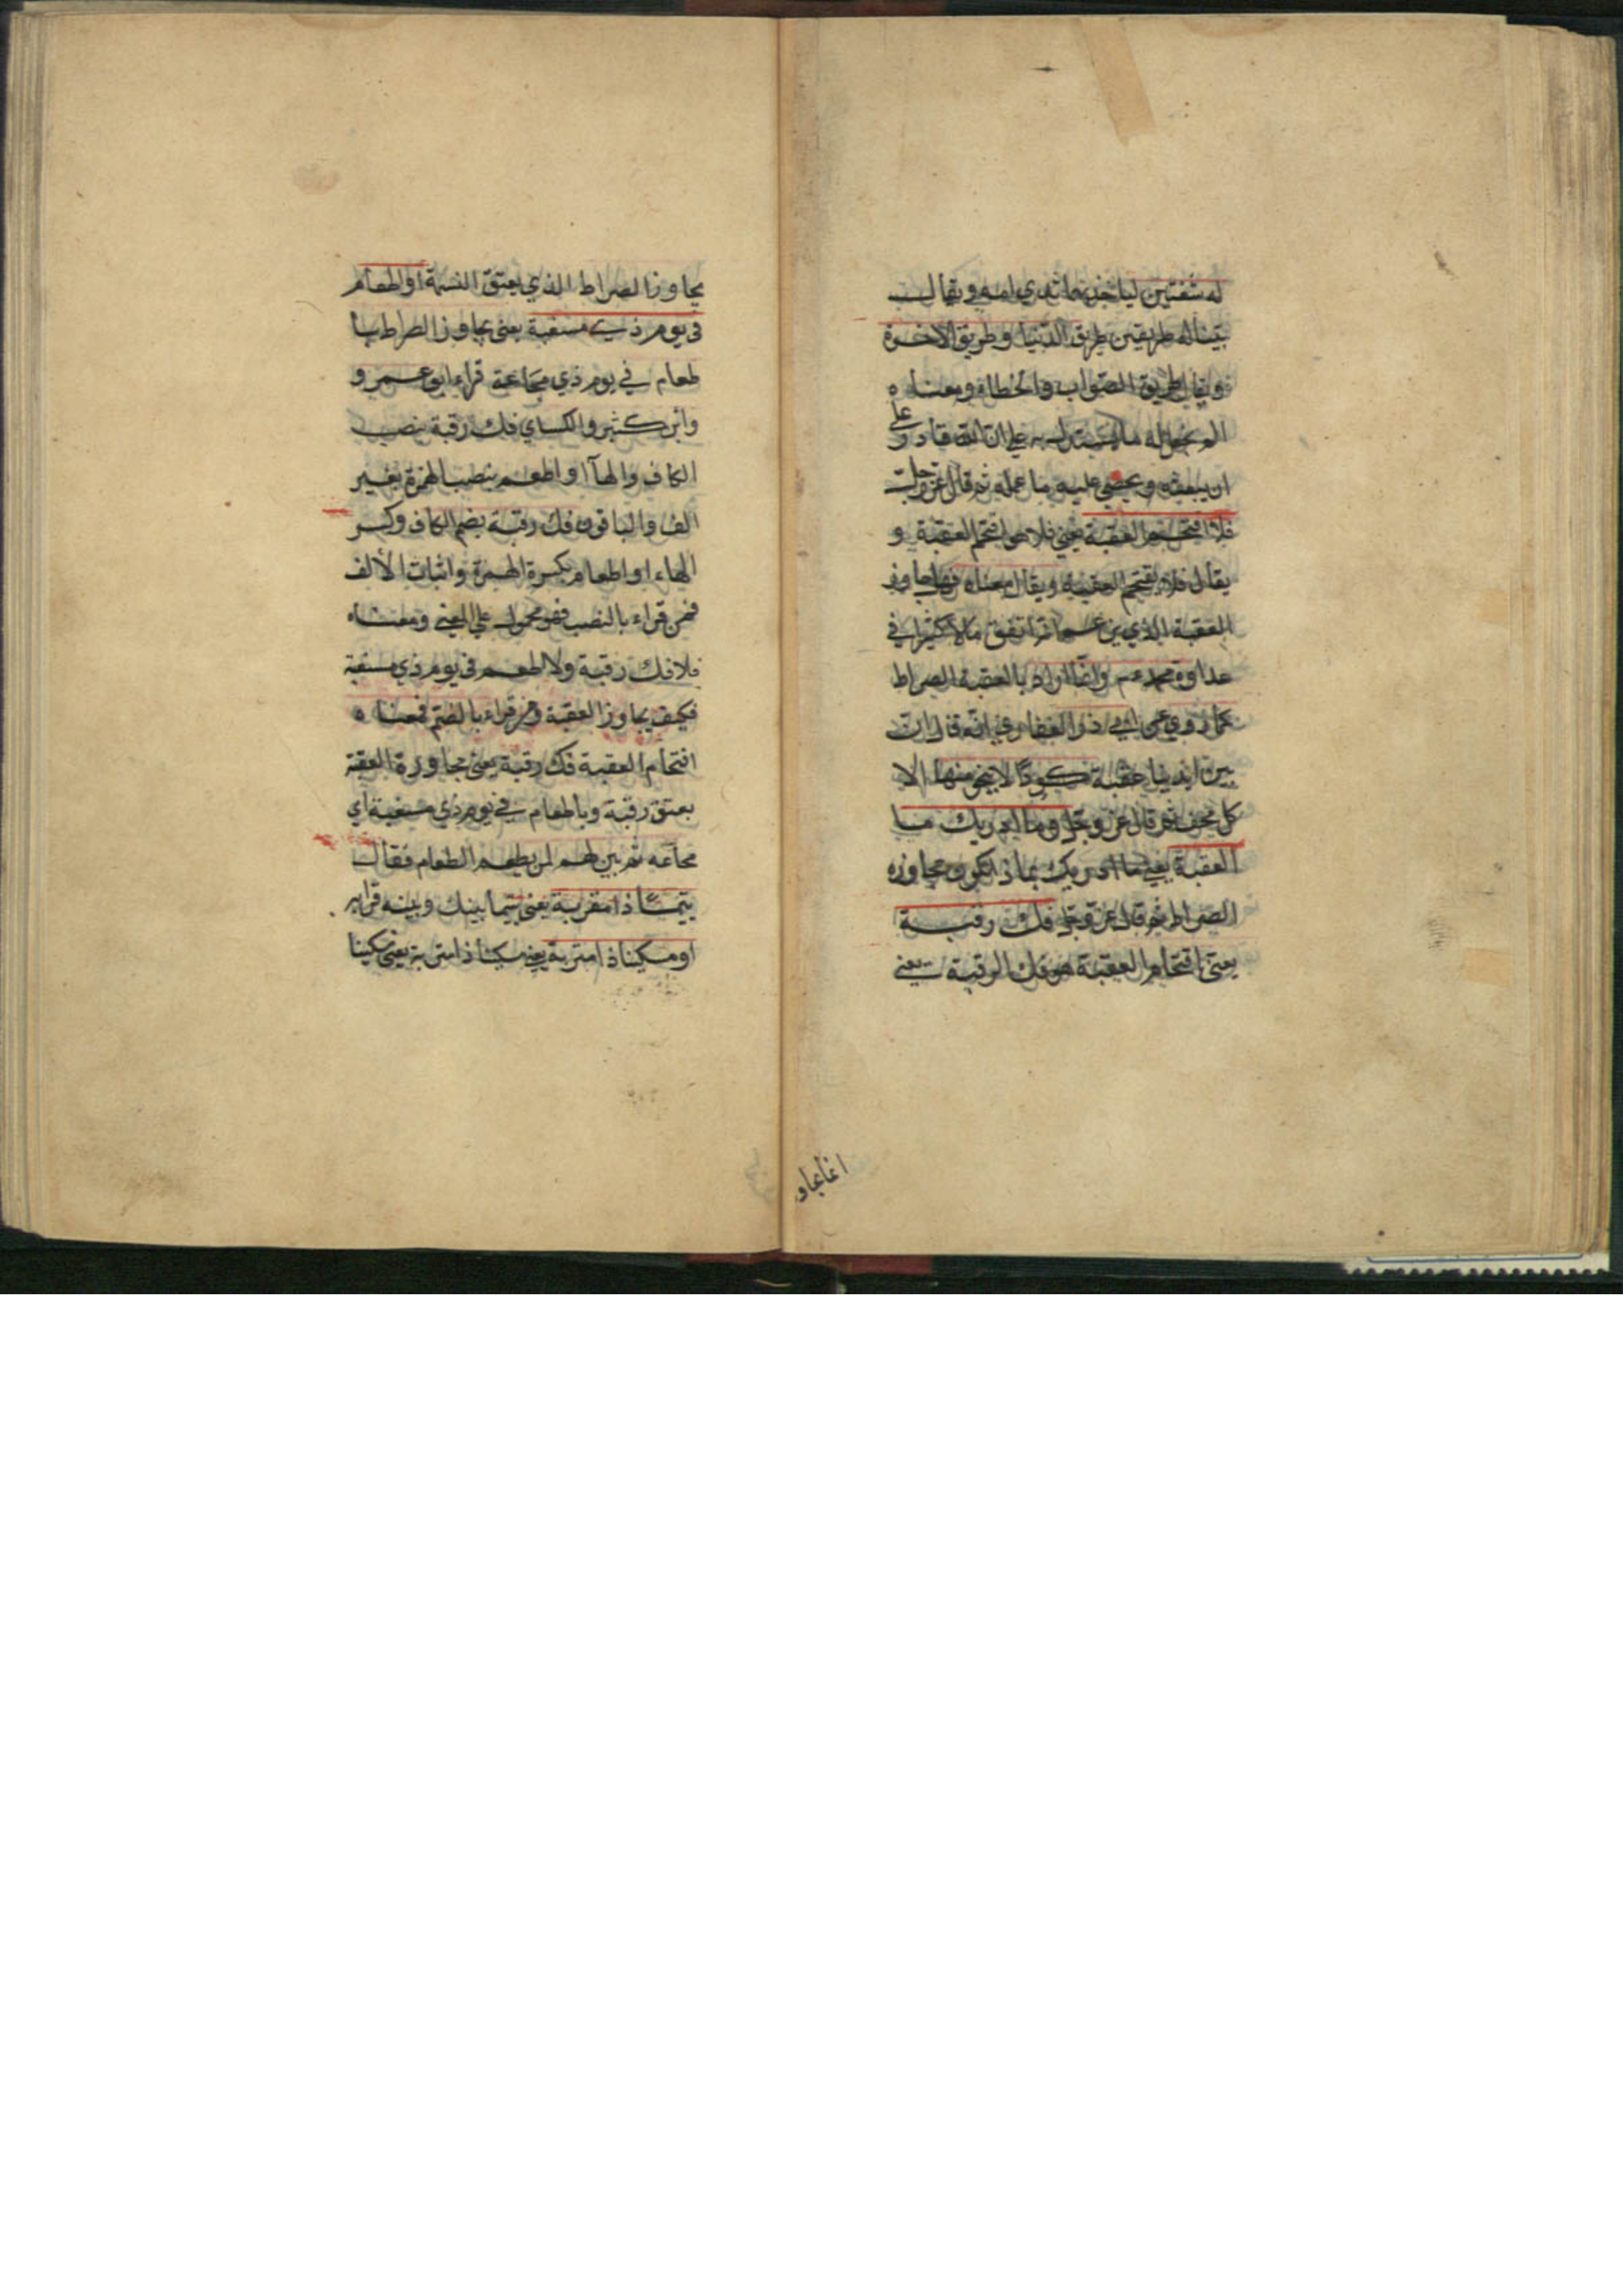 له شفتين لياخذ بهما ثدي امه ويقال
بيناله طريقين طريق الدنيا وطريق الاخرة
ويقال طريق الصواب والخطاء ومعناه
الم نجعل له ما يستدل به علي ان الله قادر علي
ان يبعثه ويحصي عليه ما عمله ثم قال عز وجل
فلا اقتحم العقبة يعني فلا هو اقتحم العقبة و
يقال فلا يقتحم العقبة ويقال معناه فهلا جاوز
العقبة الذي يزعم انه انفق مالا كثيرا في
عداوة محمد عم وانما اراد بالعقبة الصراط
كما روي عن ابي ذر الغفاري انه قال ان
بين ايدينا عقبة كودا لا ينجي منها الا
كل مخف ثم قال عز وجل وما ادريك ما
العقبة يعني ما ادريك بماذا تكون مجاوزه
الصراط ثم قال عز وجل فك رقبة
يعني اقتحام العقبة هو فك الرقبة يعني
اغا يجاو
يجاوز الصراط الذي يعتق النسمة او اطعام
في يوم ذي مسغبة يعني يجاوز الصراط با
طعام في يوم ذي مجاعة قراء ابو عمرو
وابن كثير والكساي فك رقبة بنصب
الكاف والهاا او اطعم بنصب الهمزة بغير
الف والباقون فك رقبة بضم الكاف وكسر
الهاء او اطعام بكسرة الهمزة واثبات الالف
فمن قراء بالنصب فهو محمول علي المعني ومعناه
فلا فك رقبة ولا اطعم في يوم ذي مسغبة
فكيف يجاوز العقبة ومن قراء بالضم فمعناه
اقتحام العقبة فك رقبة يعني مجاوزة العقبة
بعتق رقبة وباطعام في يوم ذي مسغبة اي
مجاعه ثم بين لهم لمن يطعم الطعام فقال
يتيما ذا مقربة يعني يتيما بينك وبينه قرابه
او مسكينا ذا متربة يعني مسكينا ذا متربة يعني مسكينا